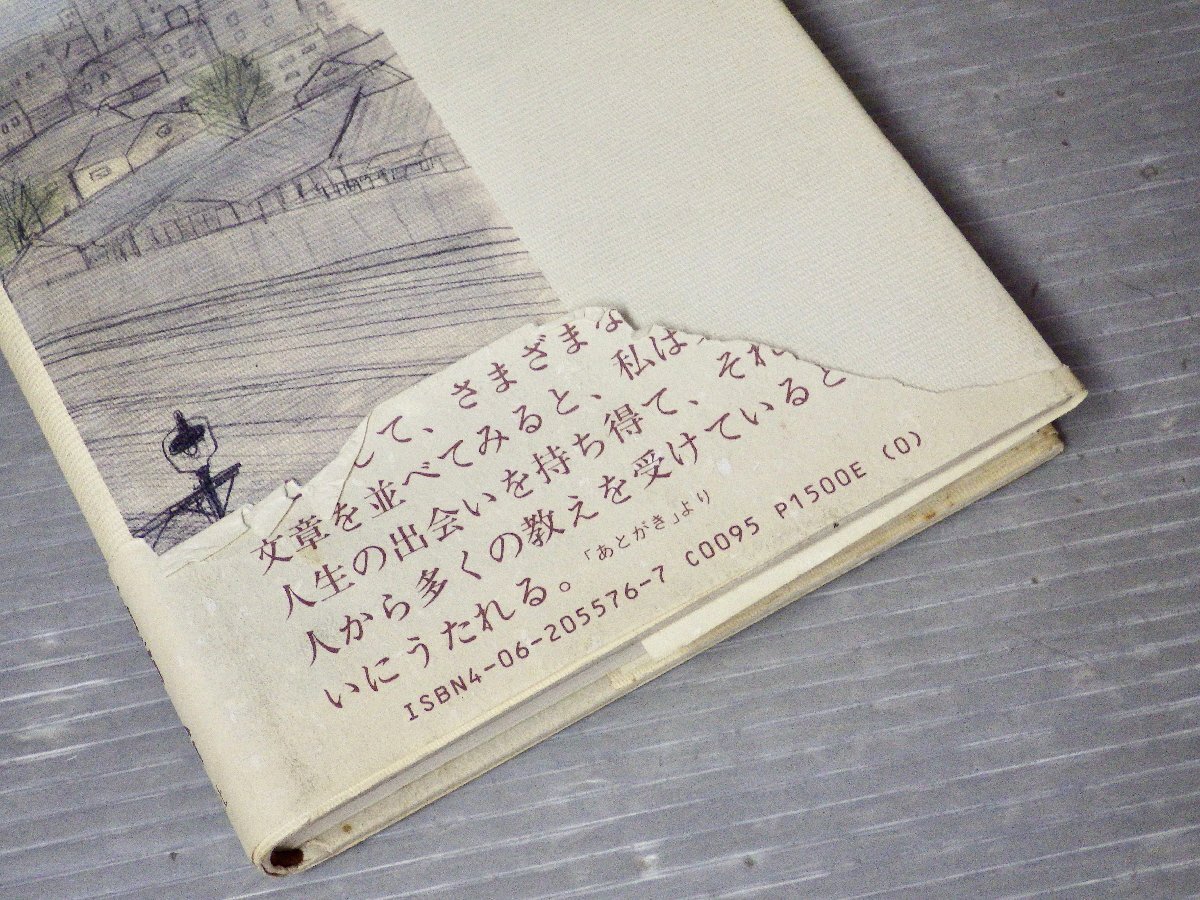 して、さまざまな
文章を並べてみると、私は
人生の出会いを持ち得て、それ
人から多くの教えを受けていると
いにうたれる。「あとがき」より
ISBN4-06-205576-7 C0095 P1500E (0)